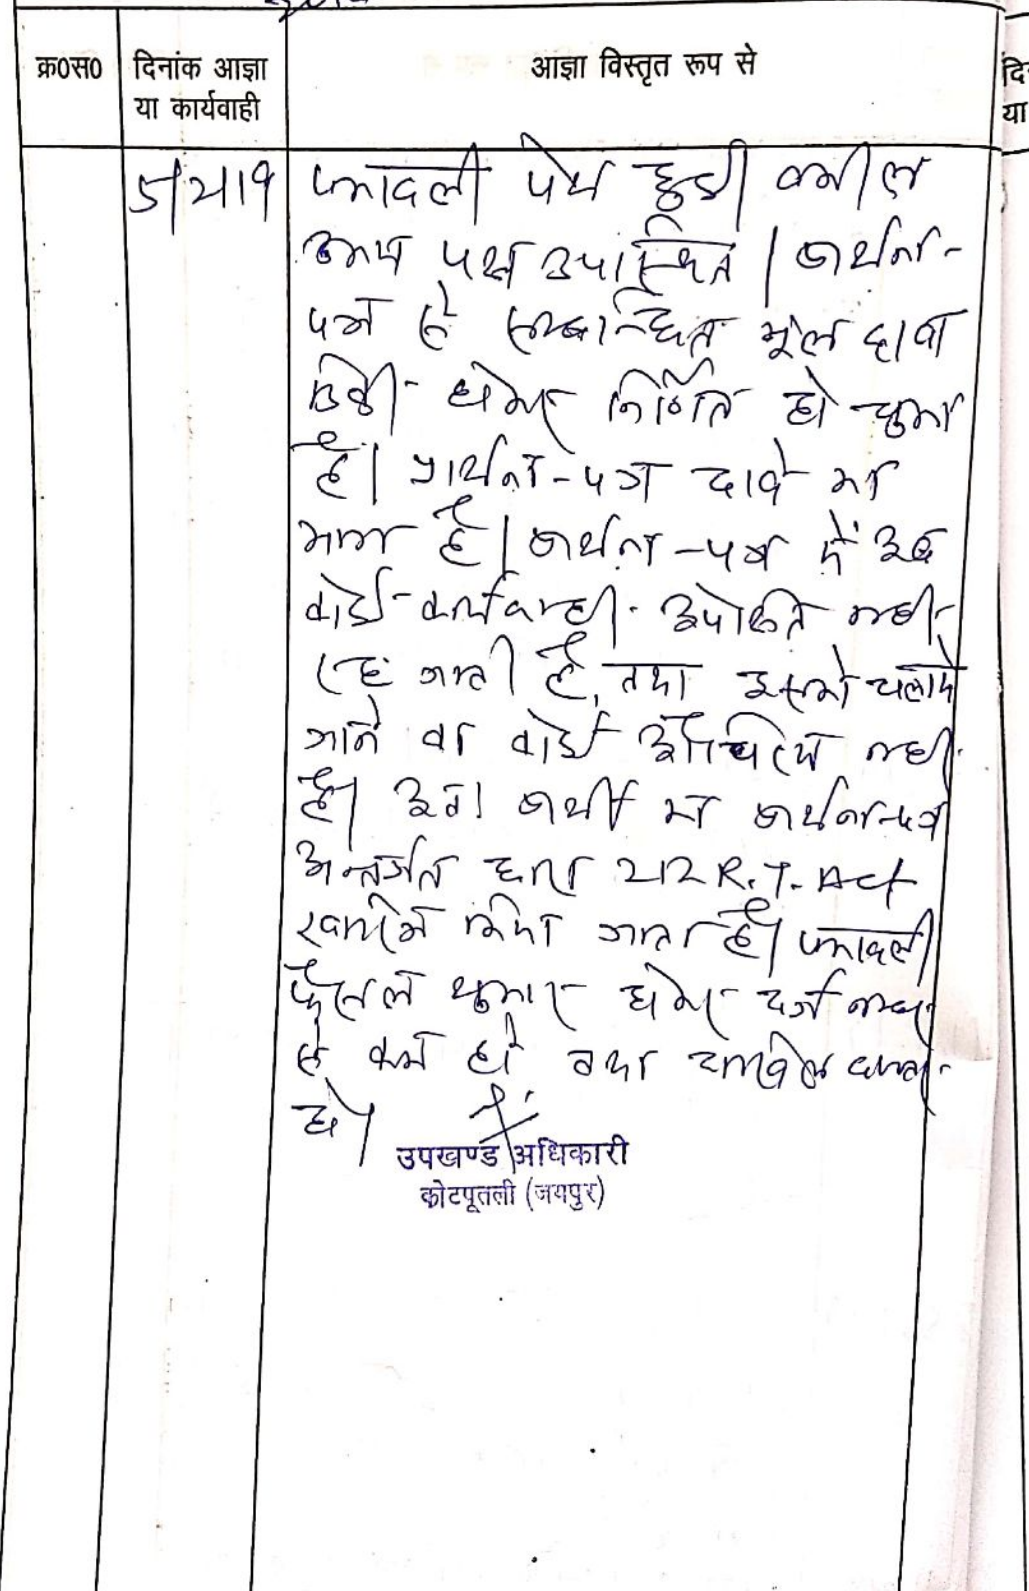 क्र०स० दिनांक आज्ञा या कार्यवाही आज्ञा विस्तृत रूप से
पत्रावली पेश हुई। वकील
उभय पक्ष उपस्थित। प्रार्थना-
पत्र से सम्बन्धित मूल दावा
डिक्री होकर निर्णित हो चुका
है। प्रार्थना-पत्र दावे का
भाग है। प्रार्थना-पत्र में अब
कोई कार्यवाही अपेक्षित नहीं
रह जाती है, तथा इसको चलाये
जाने का कोई औचित्य नहीं
है। अतः प्रार्थी का प्रार्थना-पत्र
अन्तर्गत धारा 212 R.T. Act
खारिज किया जाता है। पत्रावली
फैसल शुमार होकर दर्ज नम्बर
से कम हो तथा दाखिल दफ्तर
हो।
उपखण्ड अधिकारी
कोटपूतली (जयपुर)
दि
या